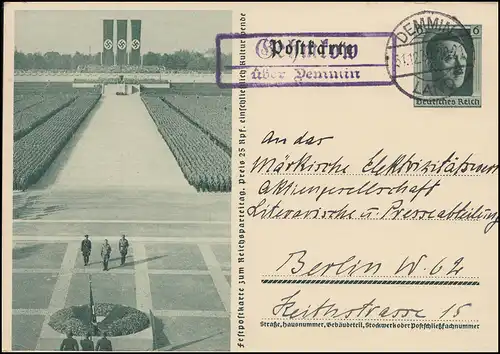 Festpostkarte zum Reichsparteitag. Preis 25 Rpf. einschließlich Kulturspende
Postkarte
über Demmin
DEMMIN
LAND
6
Deutsches Reich
An das
Märkische Elektrizitätswerk
Aktiengesellschaft
Literarische u. Presseabteilung
Berlin W. 62
Keithstrasse 15
Straße, Hausnummer, Gebäudeteil, Stockwerk oder Postschließfachnummer